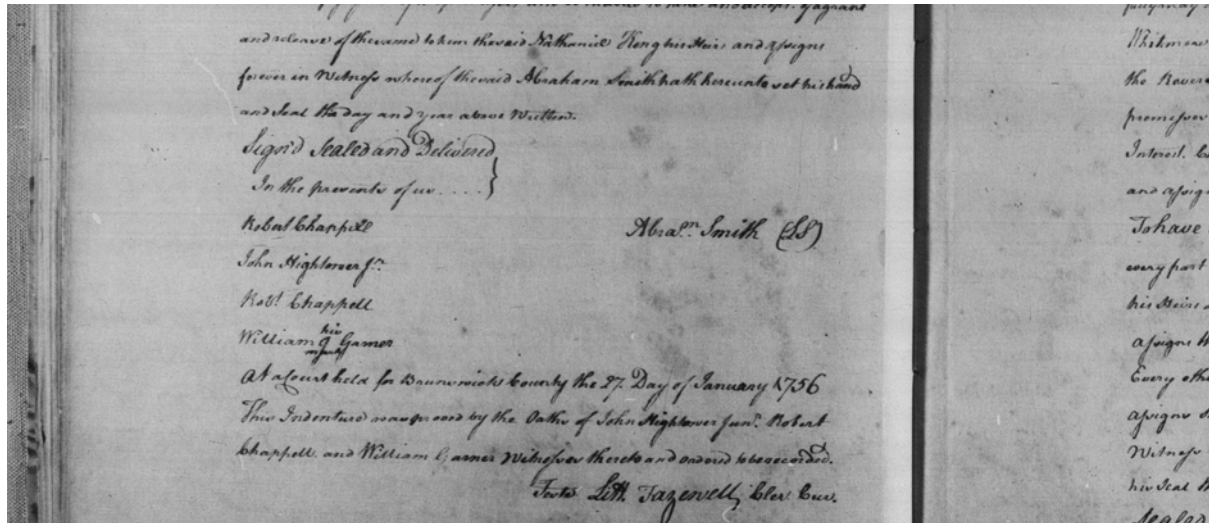 and release of the same to him the said Nathaniel King his Heirs and assigns
forever in Witness whereof the said Abraham Smith hath hereunto set his hand
and Seal the day and year above Written.
Sign'd Sealed and Delivered
In the presents of us ....
Robert Chappell
Abram. Smith (LS)
John Hightower Jr.
Robt. Chappell
his
William q Garner
mark
At a Court held for Brunswick County the 27. Day of January 1756
This Indenture was proved by the Oaths of John Hightower Junr. Robert
Chappell and William Garner Witnesses thereto and ordered to be recorded.
Teste Litt. Tazewell, Cler. Cur.
the
premises
Interest
and assigns
To have
every part
his Heirs
assigns
Every
assigns
Witness
his Seal
Sealed